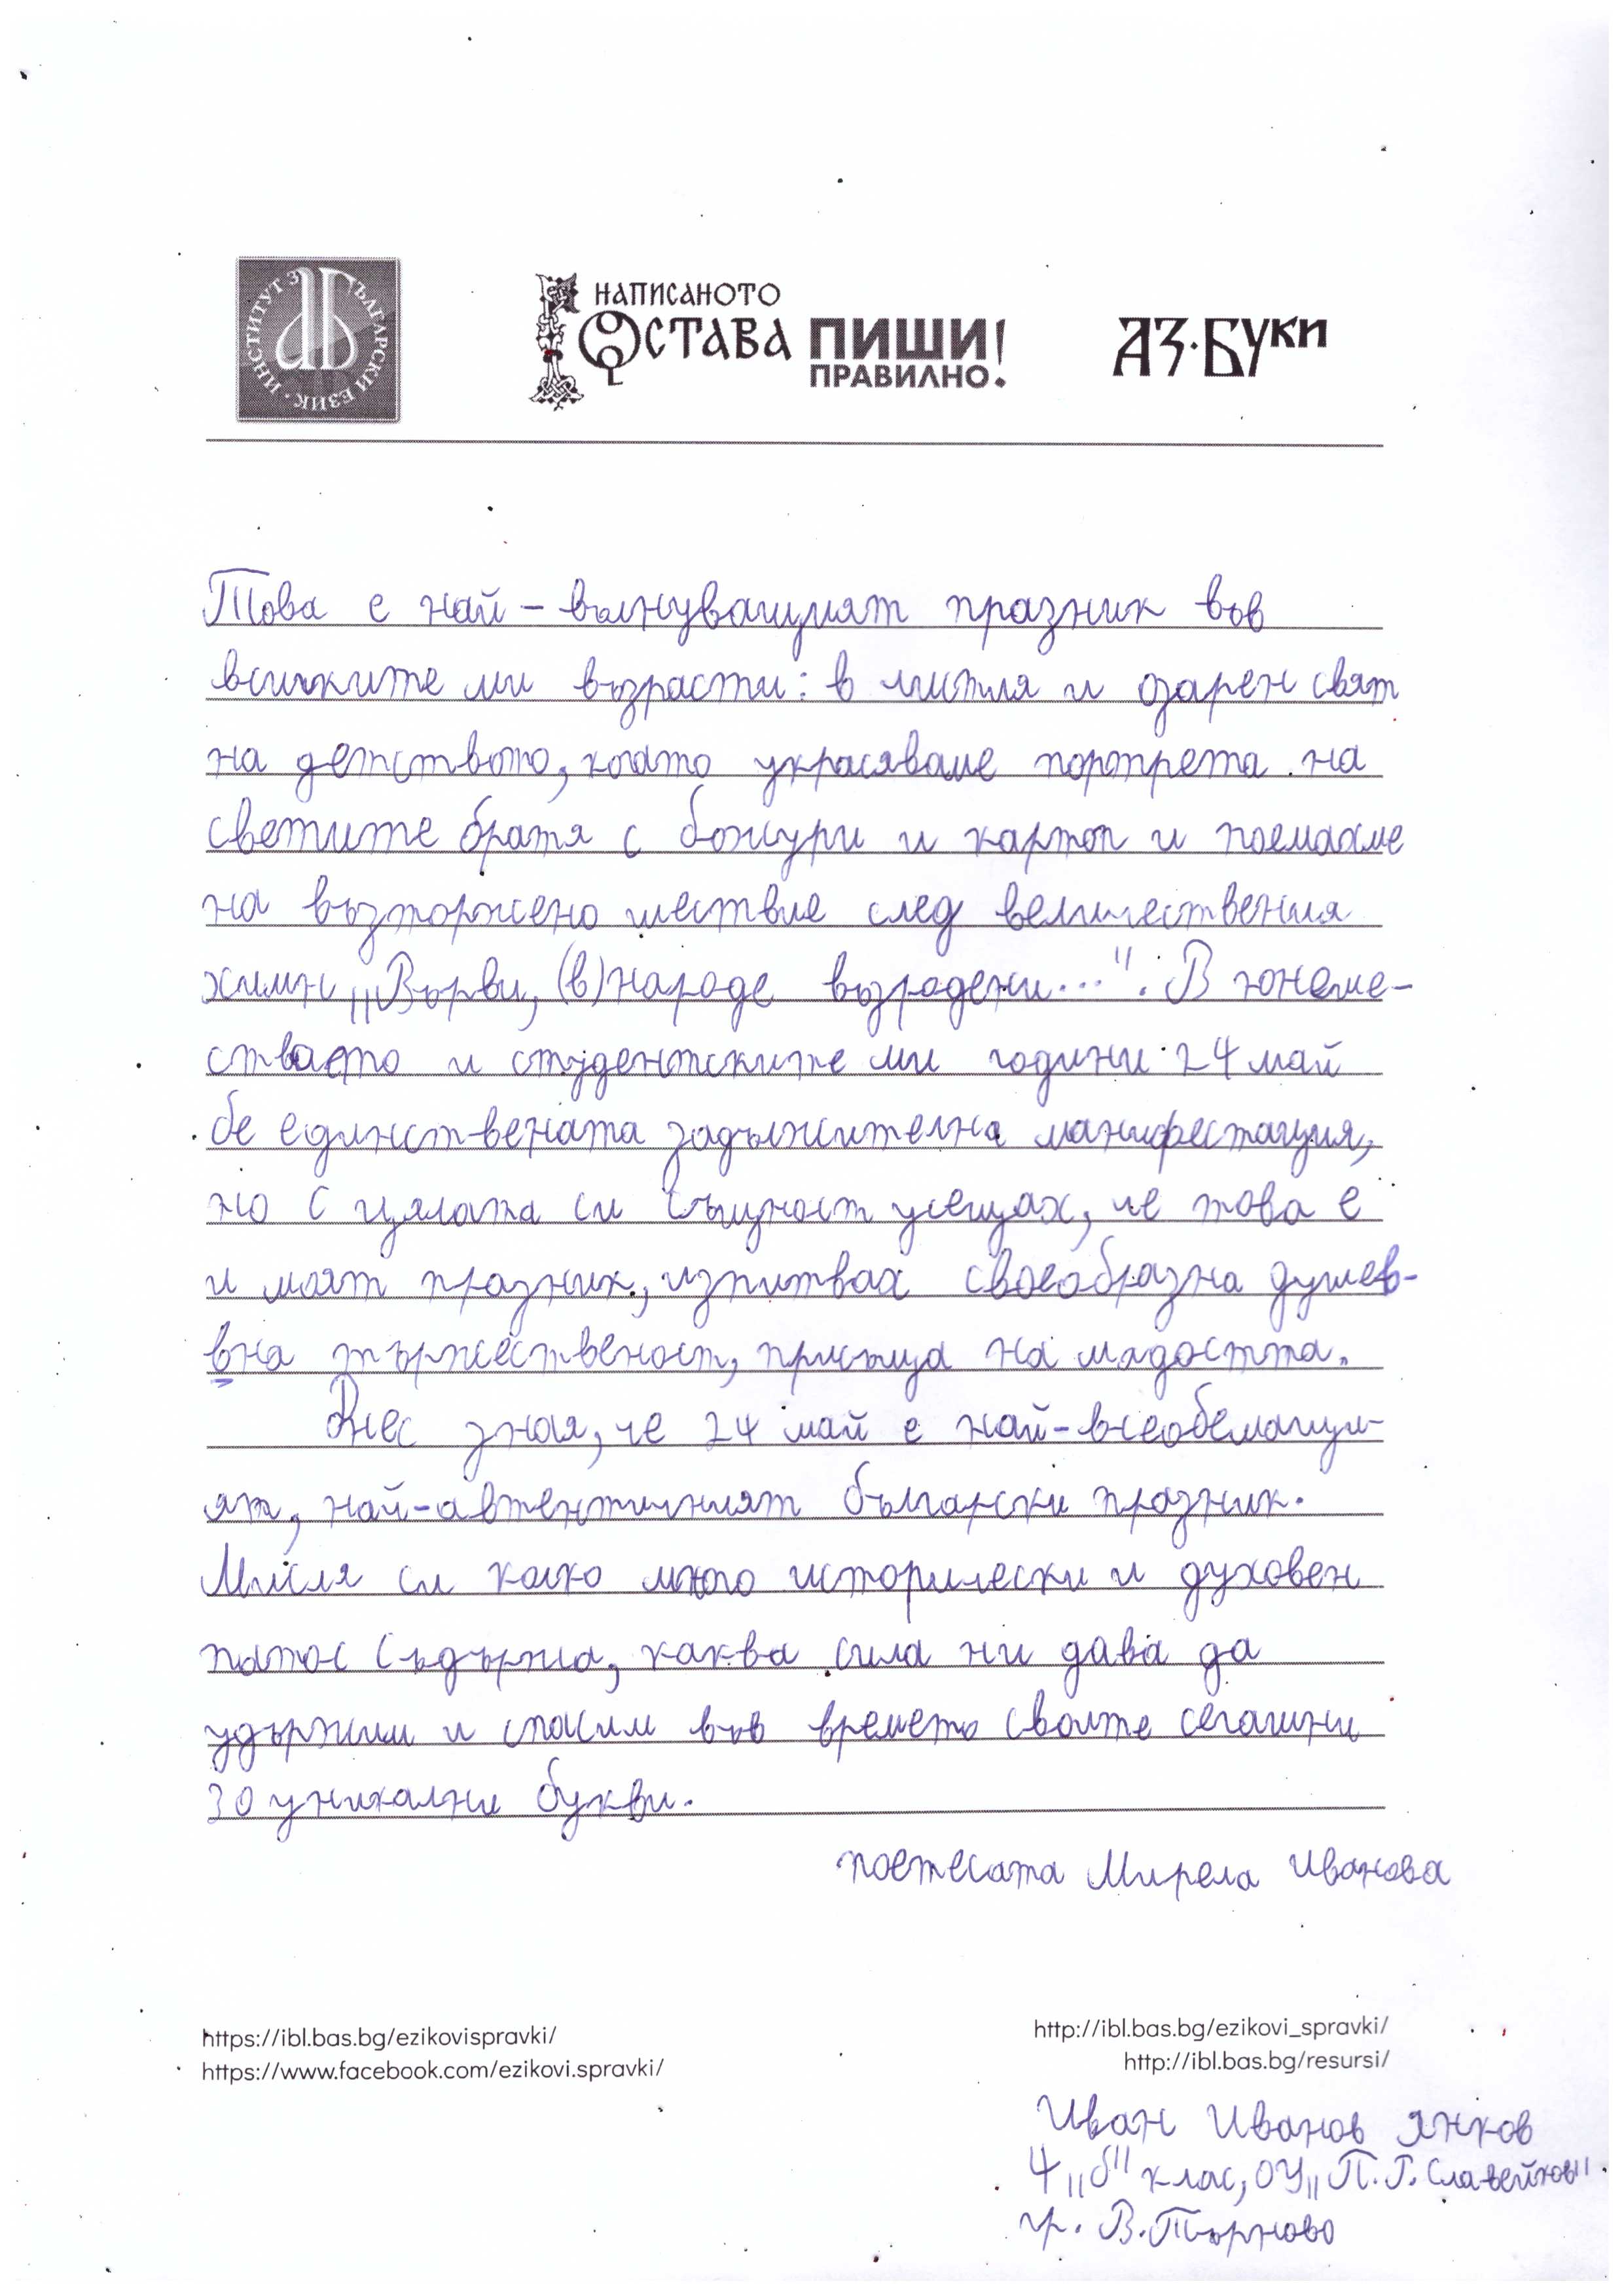 ИНСТИТУТ ЗА БЪЛГАРСКИ ЕЗИК
НАПИСАНОТО
ОСТАВА ПИШИ!
ПРАВИЛНО.
АЗ·БУКИ
Това е най-вълнуващият празник във
всичките ми възрасти: в чистия и озарен свят
на детството, когато украсяваме портрета на
светите братя с божури и картоп и поемахме
на възторжено шествие след величествения
химн „Върви, (в)народе възродени...". В юноше-
ството и студентските ми години 24 май
бе единствената задължителна манифестация,
но с цялата си същност усещах, че това е
и моят празник, изпитвах своеобразна душев-
вна тържественост, присъща на младостта.
Днес зная, че 24 май е най-всеобемащи-
ят, най-автентичният български празник.
Мисля си колко много исторически и духовен
патос съдържа, каква сила ни дава да
удържим и спасим във времето своите сегашни
30 уникални букви.
поетесата Мирела Иванова
https://ibl.bas.bg/ezikovispravki/
https://www.facebook.com/ezikovi.spravki/
http://ibl.bas.bg/ezikovi_spravki/
http://ibl.bas.bg/resursi/
Иван Иванов Янков
4 „б" клас, ОУ „П. Р. Славейков"
гр. В. Търново